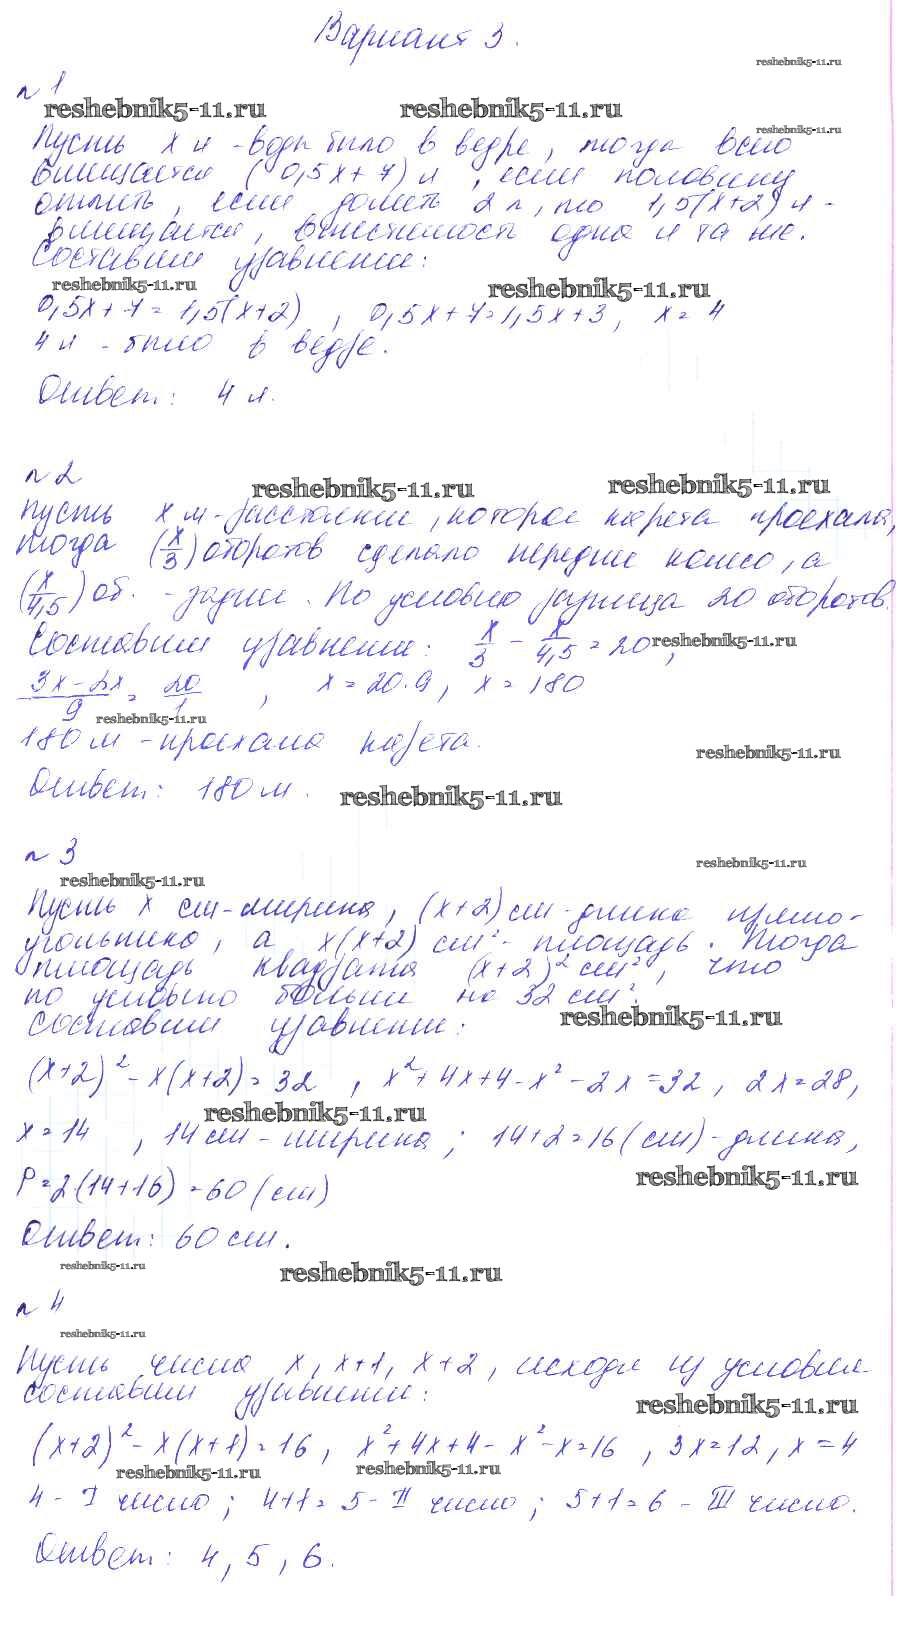 Вариант 3.
reshebnik5-11.ru
n 1
reshebnik5-11.ru reshebnik5-11.ru
Пусть x л - воды было в ведре, тогда всего
reshebnik5-11.ru
вмещается (0,5x+7) л, если половину
отлить, если долить 2 л, то 1,5(x+2) л -
вмещается, вместимость одна и та же.
Составим уравнение:
reshebnik5-11.ru reshebnik5-11.ru
0,5x+7=1,5(x+2), 0,5x+7=1,5x+3, x=4
4 л - было в ведре.
Ответ: 4 л.
n 2
reshebnik5-11.ru reshebnik5-11.ru
Пусть x м - расстояние, которое карета проехала,
тогда (x/3) оборотов сделало переднее колесо, а
(x/4,5) об. - заднее. По условию разница 20 оборотов.
Составим уравнение: x/3 - x/4,5 = 20,
reshebnik5-11.ru
3x-2x/9 = 20/1, x=20·9, x=180
reshebnik5-11.ru
180 м - проехала карета.
reshebnik5-11.ru
Ответ: 180 м.
reshebnik5-11.ru
n 3
reshebnik5-11.ru
reshebnik5-11.ru
Пусть x см - ширина, (x+2) см - длина прямо-
угольника, а x(x+2) см² - площадь. Тогда
площадь квадрата (x+2)² см², что
по условию больше на 32 см².
Составим уравнение:
reshebnik5-11.ru
(x+2)² - x(x+2)=32, x²+4x+4-x²-2x=32, 2x=28,
reshebnik5-11.ru
x=14, 14 см - ширина; 14+2=16(см) - длина,
reshebnik5-11.ru
P=2(14+16)=60(см)
Ответ: 60 см.
reshebnik5-11.ru reshebnik5-11.ru
n 4
reshebnik5-11.ru
Пусть числа x, x+1, x+2, исходя из условия
составим уравнение:
reshebnik5-11.ru
(x+2)² - x(x+1)=16, x²+4x+4-x²-x=16, 3x=12, x=4
reshebnik5-11.ru reshebnik5-11.ru
4 - I число; 4+1=5 - II число; 5+1=6 - III число.
Ответ: 4, 5, 6.